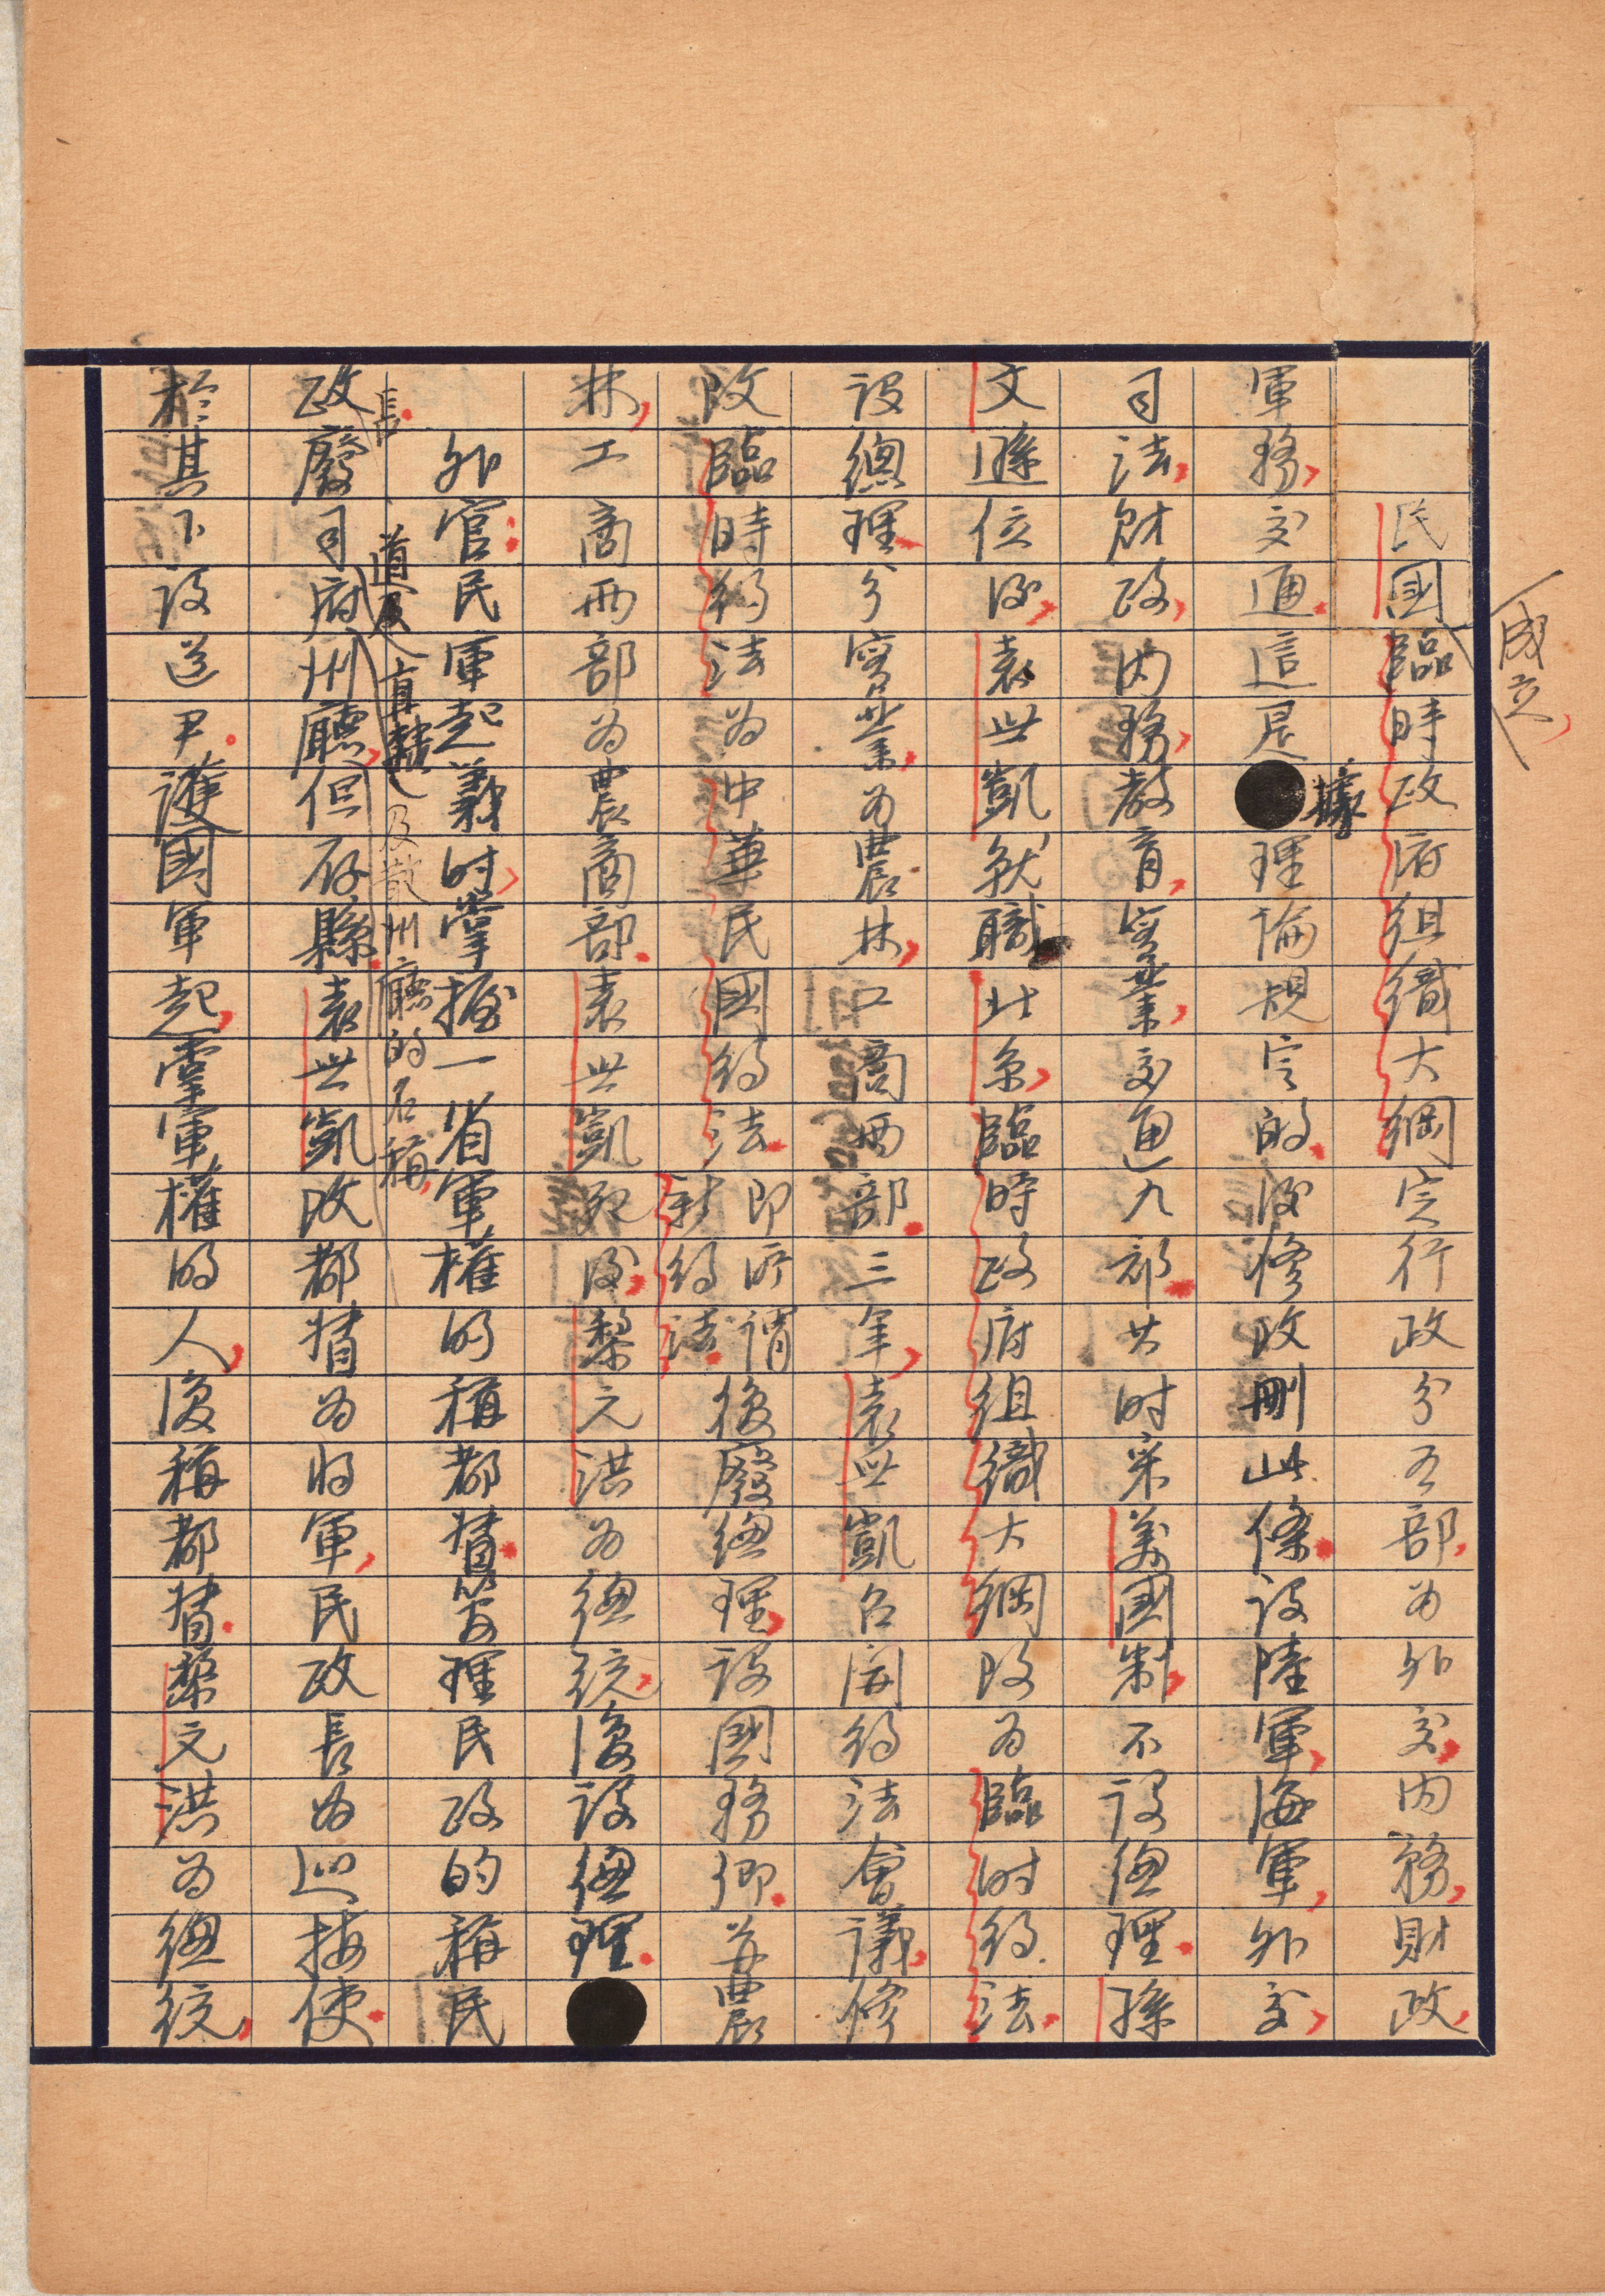 民國成立，臨時政府組織大綱定行政分五部，為外交，內務，財政，
軍務，交通。這是據理論規定的。後修改刪此條。設陸軍，海軍，外交，
司法，財政，內務，教育，實業，交通九部。其时采美國制，不設總理。孫
文遜位後，袁世凱就職北京，臨時政府組織大綱改為臨时約法。
設總理。分實業，為農林，工商兩部。三年，袁世凱召開約法會議，修
改臨時約法為中華民國約法。即所謂新約法。後廢總理，設國務卿。并農
林，工商兩部為農商部。袁世凱死後，黎元洪為總統，復設總理。
外官：民軍起義时，掌握一省軍權的稱都督。管理民政的稱民
政長。廢司、道及府直隸州廳，及散州廳的名稱，但存縣。袁世凱改都督為將軍，民政長為巡按使。
於其下設道尹。護國軍起，掌軍權的人，復稱都督。黎元洪為總統，